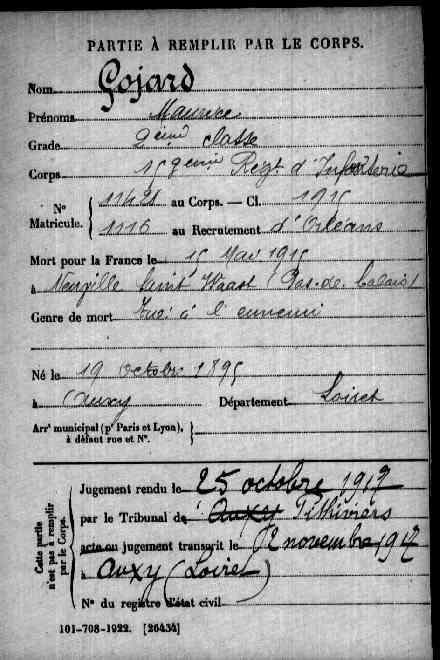 PARTIE À REMPLIR PAR LE CORPS.
Nom Gojard
Prénoms Maurice
Grade 2ème classe
Corps 159ème Regt d'Infanterie
N° Matricule. 11428 au Corps. — Cl. 1915
1116 au Recrutement d'Orléans
Mort pour la France le 15 Mai 1915
à Neuville Saint Waast (Pas-de-Calais)
Genre de mort Tué à l'ennemi
Né le 19 octobre 1895
à Auxy Département Loiret
Arr' municipal (p' Paris et Lyon), à défaut rue et N°.
Cette partie n'est pas à remplir par le Corps.
Jugement rendu le 25 octobre 1917
par le Tribunal de Auxy Pithiviers
acte ou jugement transcrit le 12 novembre 1917
à Auxy (Loiret)
N° du registre d'état civil
101-708-1922. [26434]